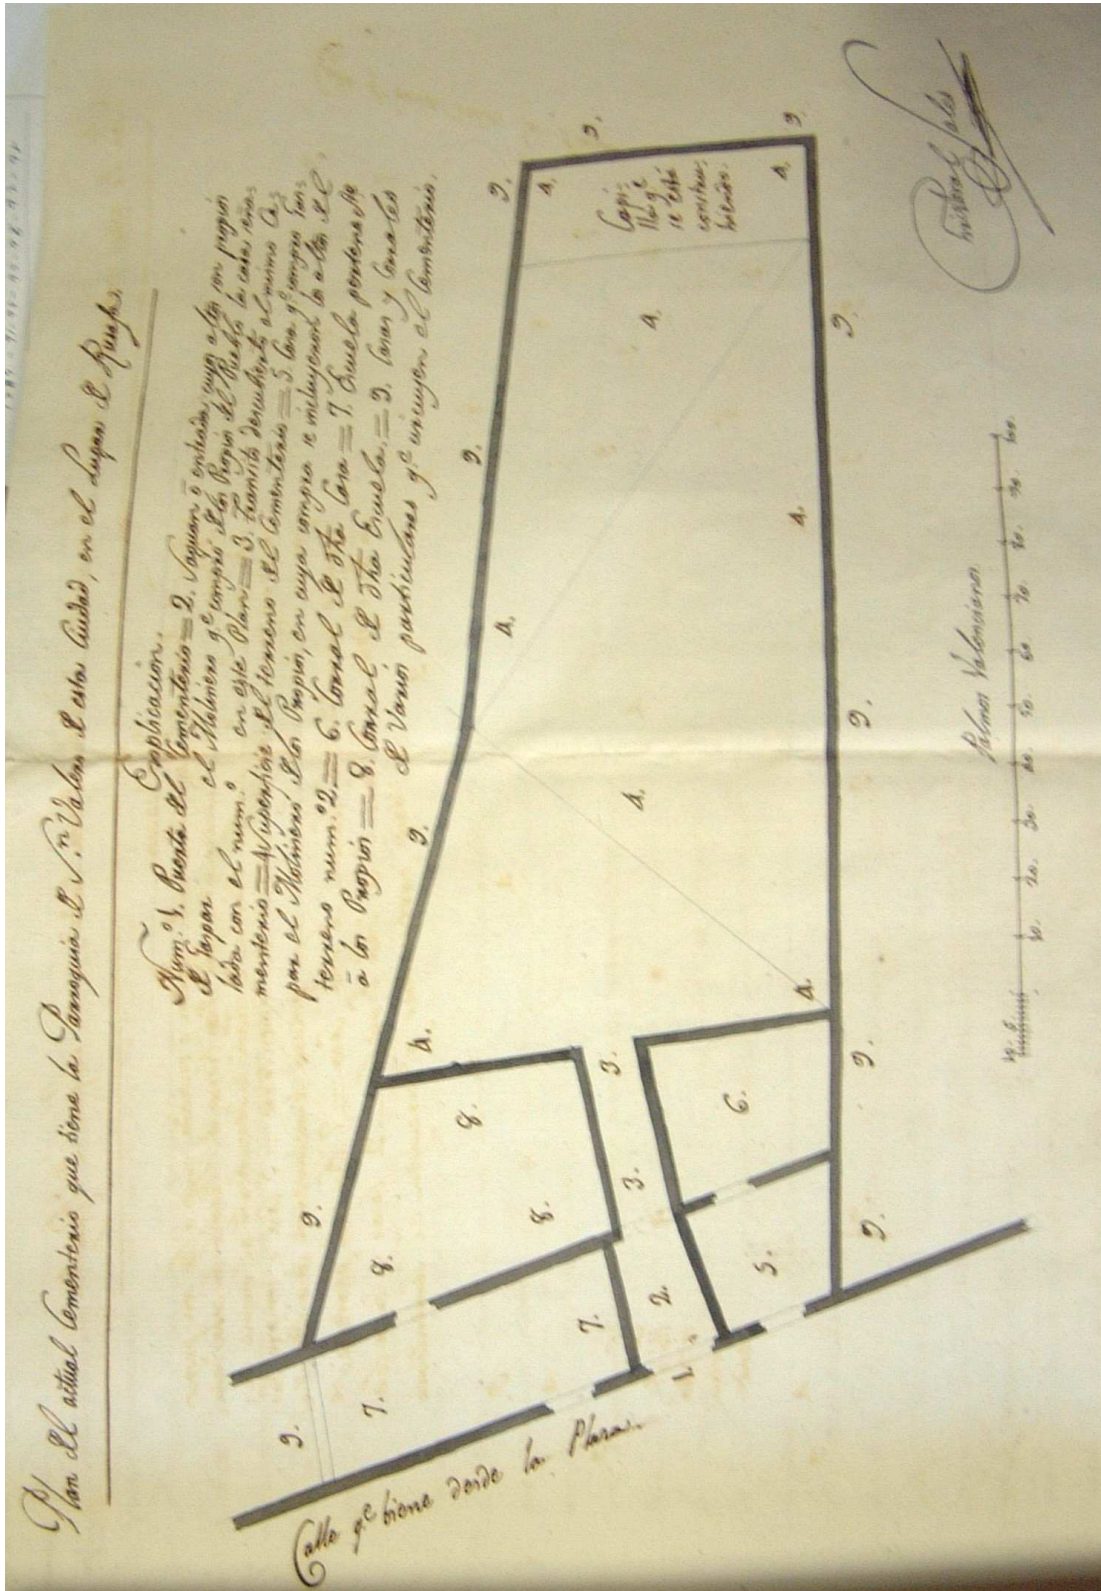 Plan del actual Cementerio que tiene la Parroquia de S.n Valero de esta Ciudad, en el Lugar de Rusafa.
Explicacion.
Num.º 1. Puerta del Cementerio = 2. Saguan ō entrada, cuyos altos son propios
de Gaspar el Molinero q.e compró de los Propios del Pueblo la casa seña-
lada con el num.º en este Plan = 3. Transito descubierto al mismo Ce-
menterio = 4. Superficie del terreno del Cementerio = 5. Casa q.e compró Gas-
par el Molinero de los Propios, en cuya compra se incluyeron los altos del
terreno num.º 2 = 6. Corral de dha Casa = 7. Escuela perteneciente
ā los Propios = 8. Corral de dha Escuela = 9. Casas y Corrales
de Varios particulares q.e circuyen el Cementerio.
9. 9. 9. 9. 9. 9.
4. 4.
Capi-
lla q.e
se está
constru-
hiendo.
4. 4. 4. 4. 4.
9. 9. 9. 9. 9.
8. 8. 8.
3. 3.
6.
7. 7.
2.
5.
1.
Calle q.e biene desde la Plaza.
Palmos Valencianos
10. 20. 30. 40. 50. 60 70. 80. 90. 100.
Christoval Sales